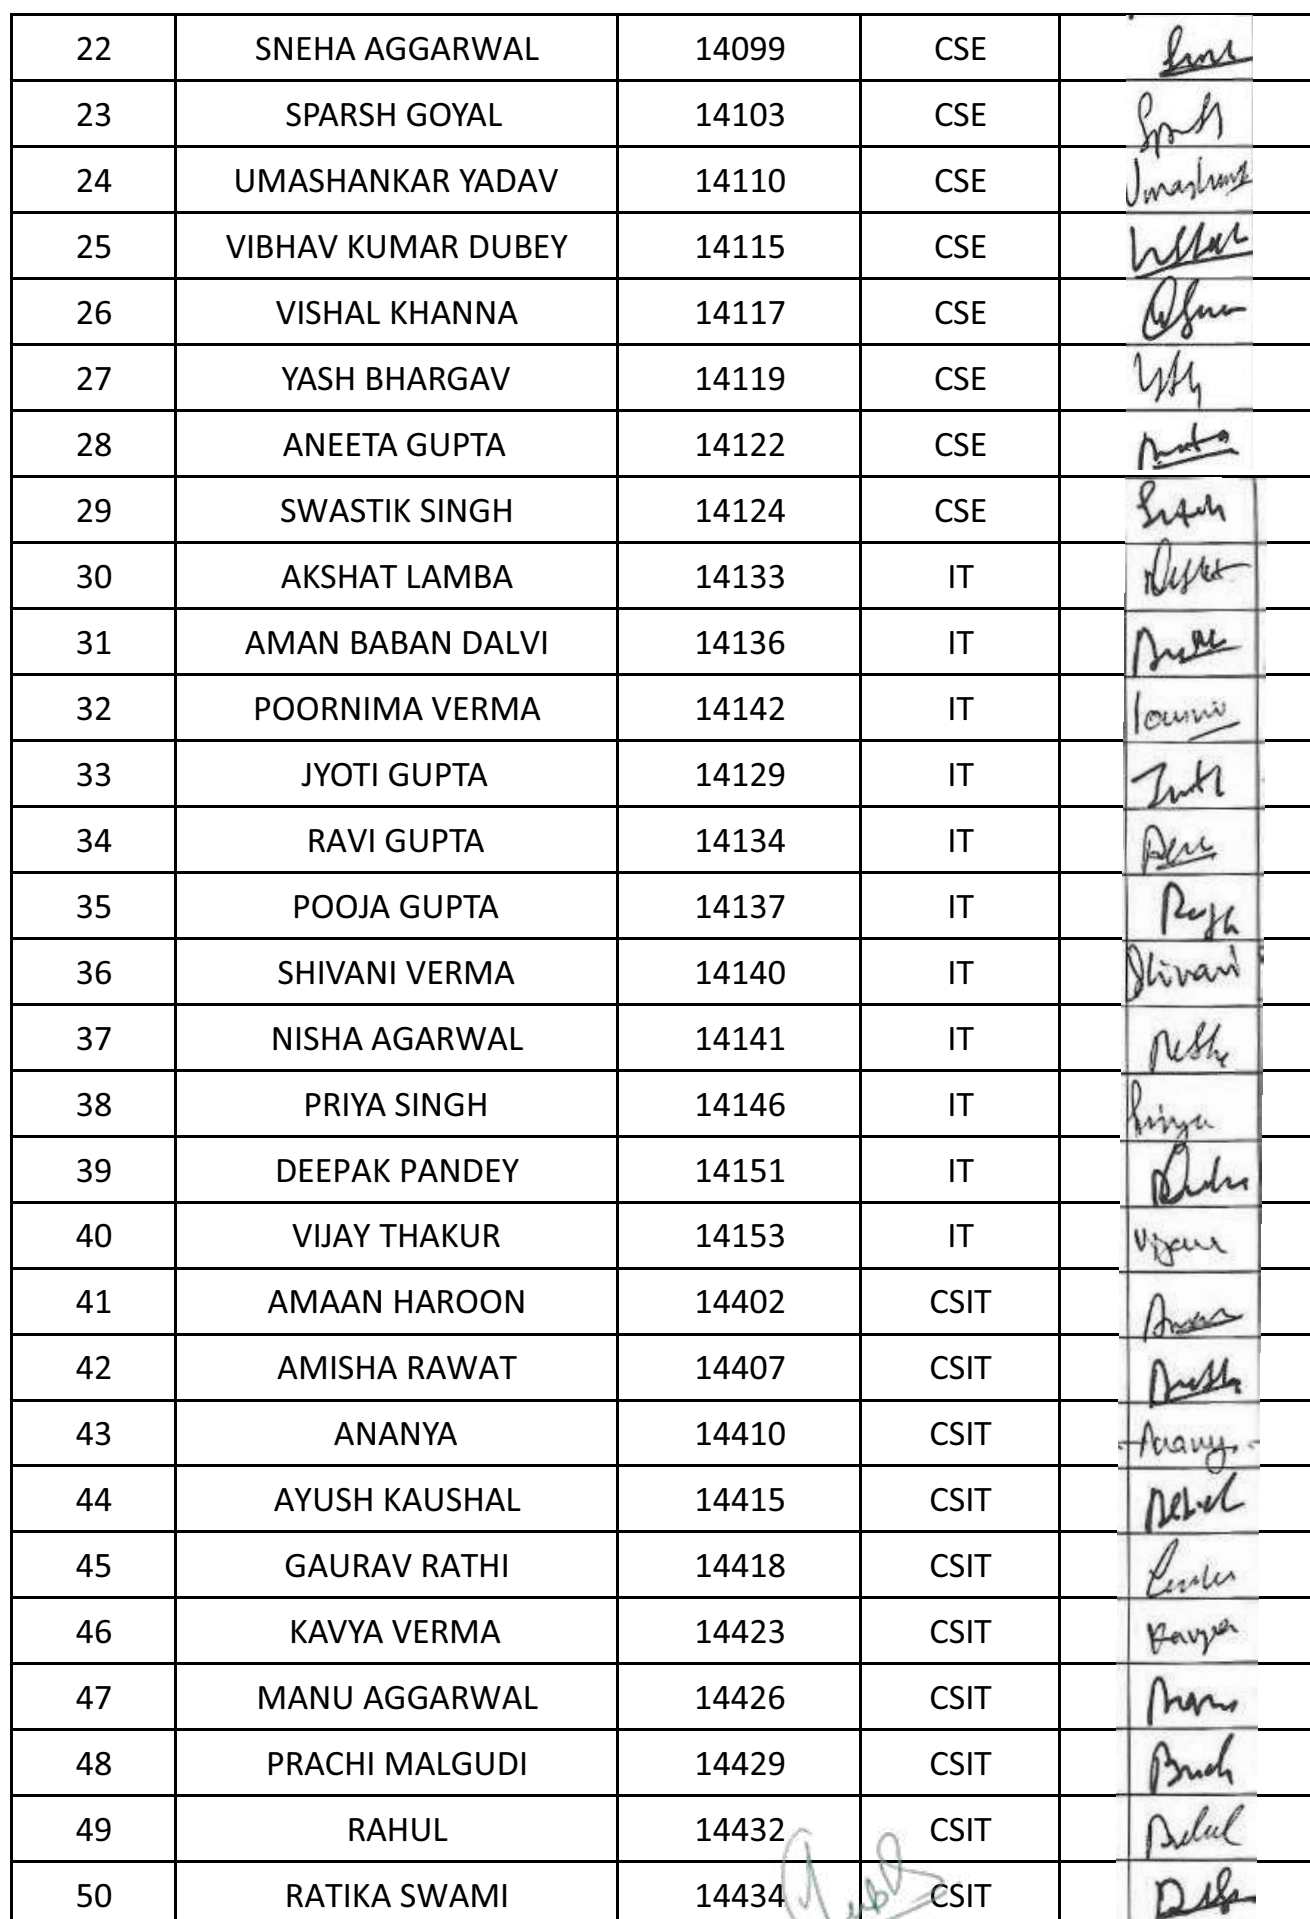 22 SNEHA AGGARWAL 14099 CSE
23 SPARSH GOYAL 14103 CSE
24 UMASHANKAR YADAV 14110 CSE
25 VIBHAV KUMAR DUBEY 14115 CSE
26 VISHAL KHANNA 14117 CSE
27 YASH BHARGAV 14119 CSE
28 ANEETA GUPTA 14122 CSE
29 SWASTIK SINGH 14124 CSE
30 AKSHAT LAMBA 14133 IT
31 AMAN BABAN DALVI 14136 IT
32 POORNIMA VERMA 14142 IT
33 JYOTI GUPTA 14129 IT
34 RAVI GUPTA 14134 IT
35 POOJA GUPTA 14137 IT
36 SHIVANI VERMA 14140 IT Shivani
37 NISHA AGARWAL 14141 IT
38 PRIYA SINGH 14146 IT
39 DEEPAK PANDEY 14151 IT
40 VIJAY THAKUR 14153 IT
41 AMAAN HAROON 14402 CSIT
42 AMISHA RAWAT 14407 CSIT
43 ANANYA 14410 CSIT
44 AYUSH KAUSHAL 14415 CSIT
45 GAURAV RATHI 14418 CSIT
46 KAVYA VERMA 14423 CSIT Kavya
47 MANU AGGARWAL 14426 CSIT
48 PRACHI MALGUDI 14429 CSIT
49 RAHUL 14432 CSIT
50 RATIKA SWAMI 14434 CSIT